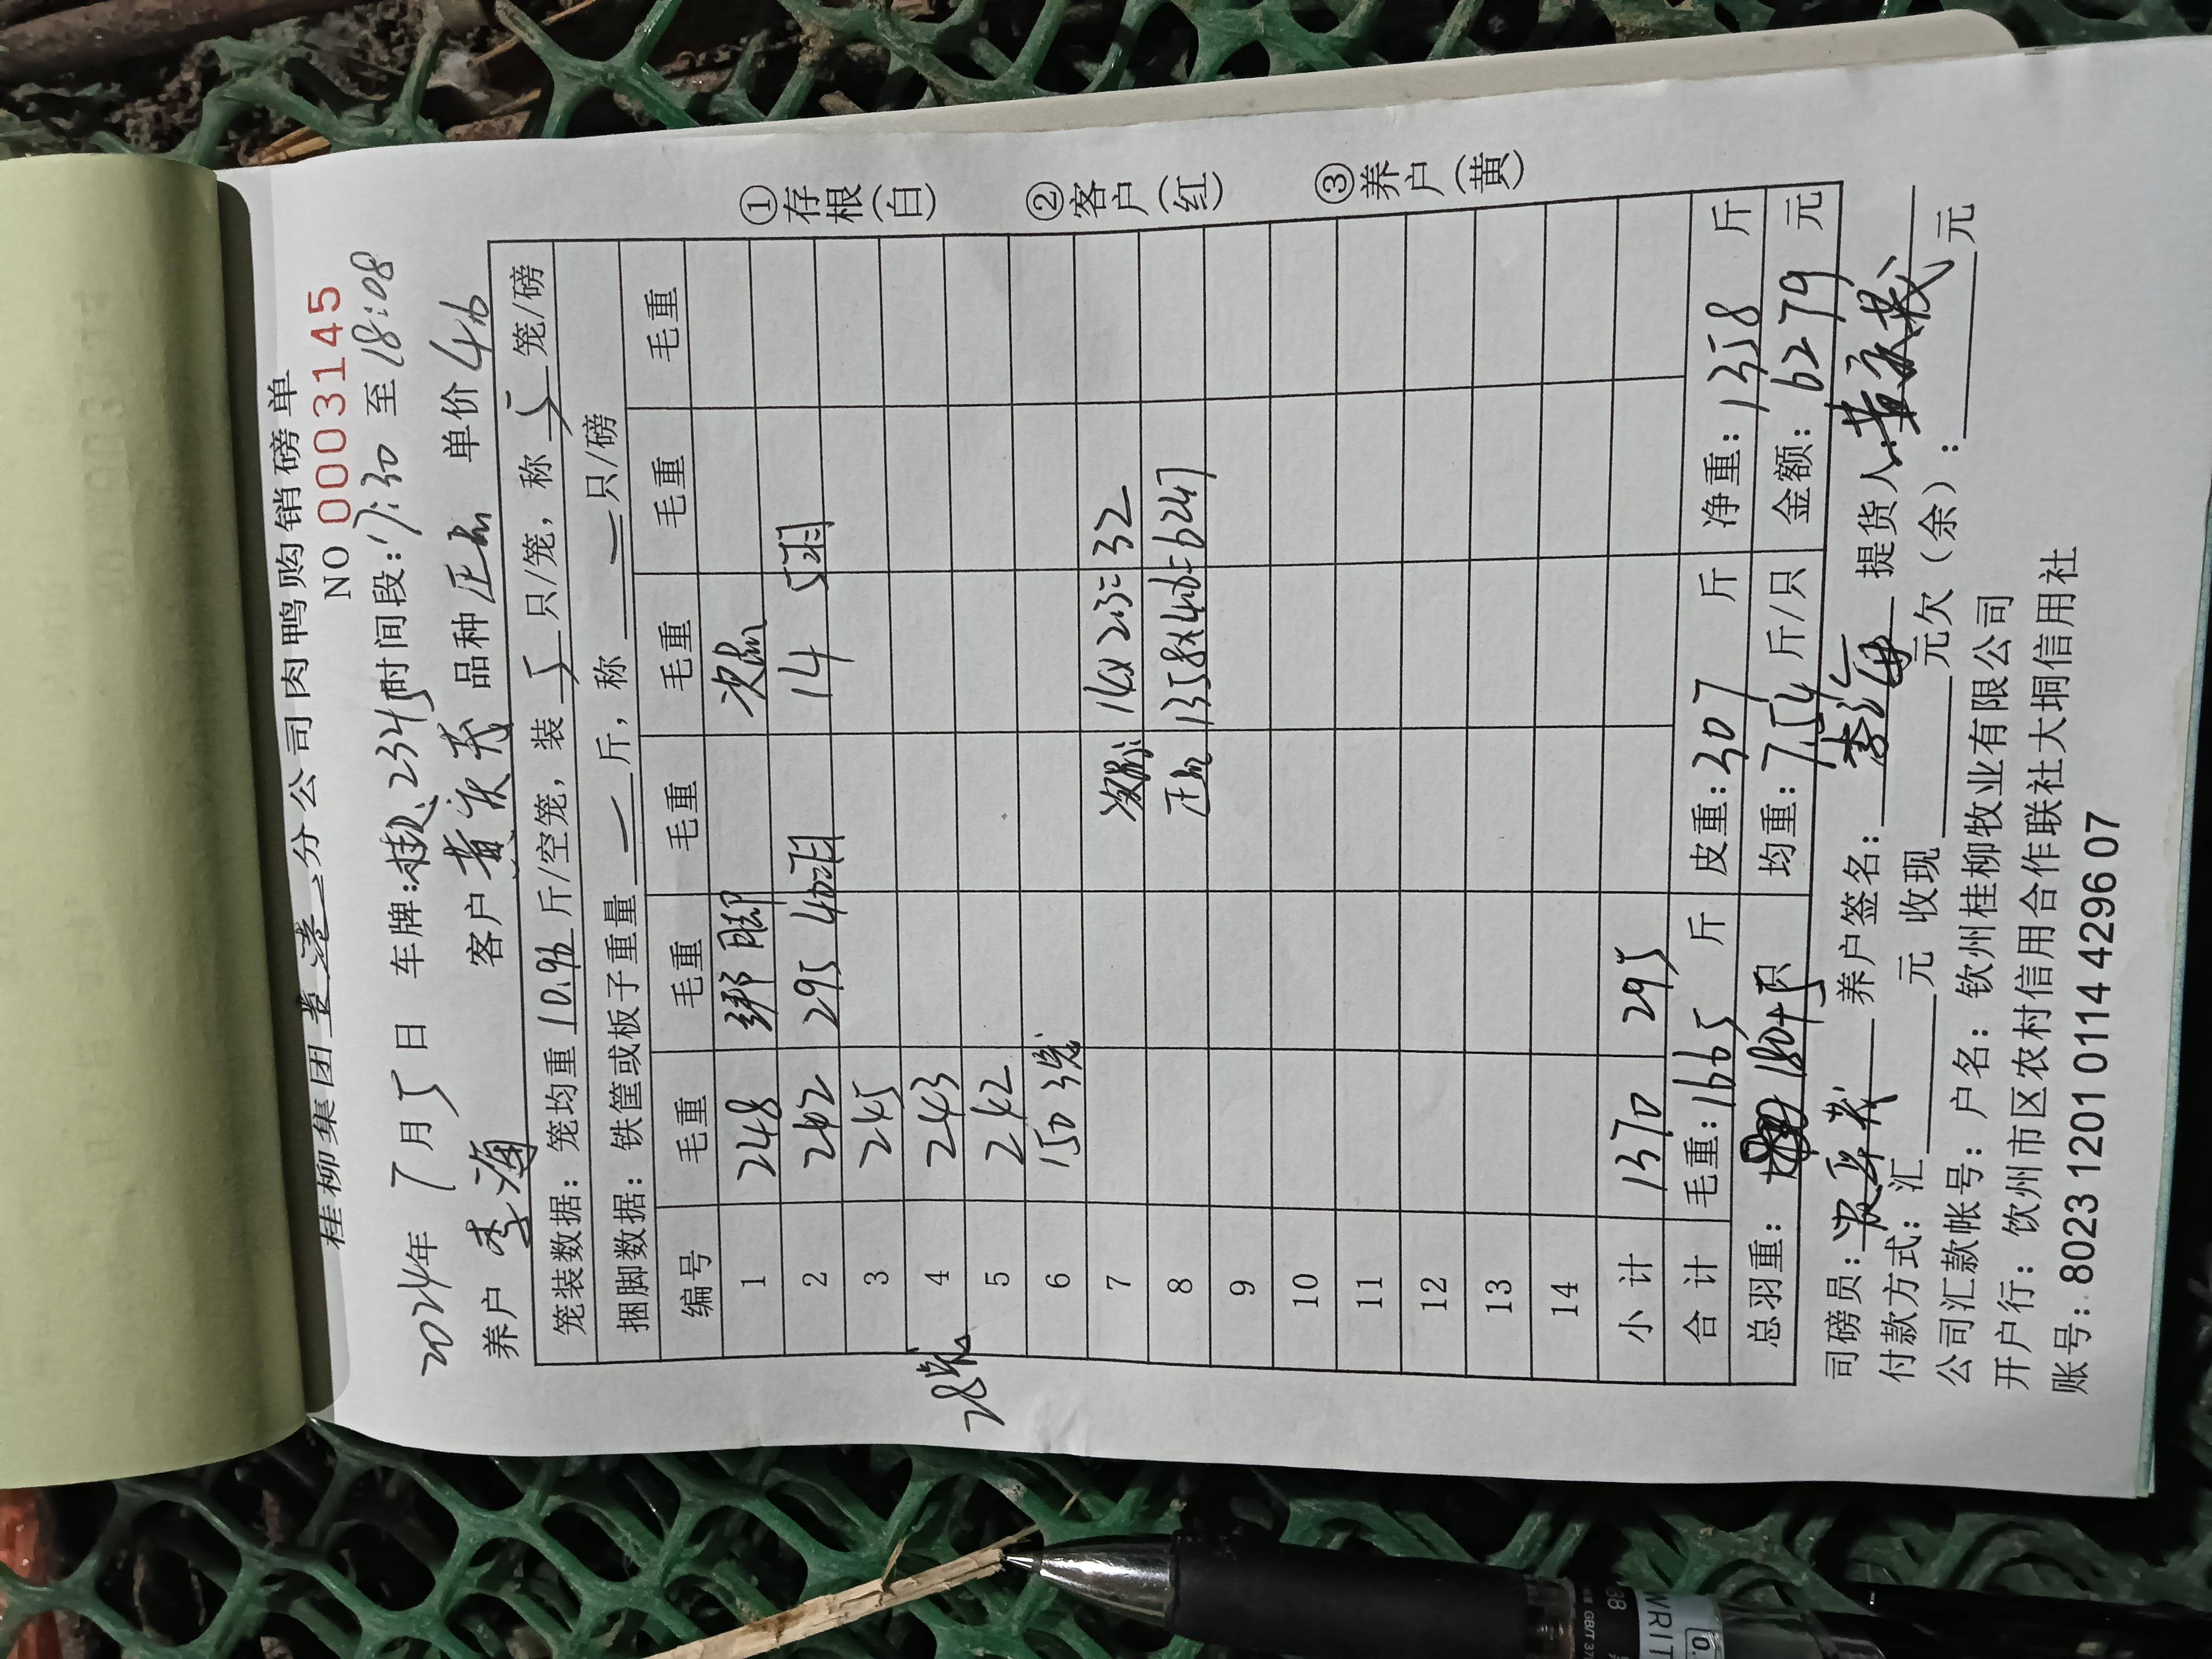 桂柳集团 分公司肉鸭购销磅单
NO 0003145
2024年 7月5日 车牌:桂 2345 时间段:17:30 至 18:08
养户 李海 客户 黄庆茂 品种 正品 单价 4.6
笼装数据:笼均重 10.96 斤/空笼,装 5 只/笼,称 5 笼/磅
捆脚数据:铁筐或板子重量 斤,称 只/磅
编号 毛重 毛重 毛重 毛重 毛重 毛重
1 248 绑脚 次品
2 242 295 40羽 14 5羽
3 245
4 243
28笼
5 242
6 150 3笼
7 次品: 14x2.3=32
8 正品 1358x4.6=6247
9
10
11
12
13
14
小计 1370 295
合计 毛重:1665 斤 皮重:307 斤 净重:1358 斤
总羽重: 180+5 只 均重:7.54 斤/只 金额:6279 元
司磅员: 养户签名:李海 提货人:黄庆茂
付款方式:汇 元 收现 元欠(余): 元
公司汇款帐号:户名:钦州桂柳牧业有限公司
开户行:饮州市区农村信用合作联社大垌信用社
账号:8023 1201 0114 4296 07
①存根(白)
②客户(红)
③养户(黄)
WRIT
0.
GB/T 37